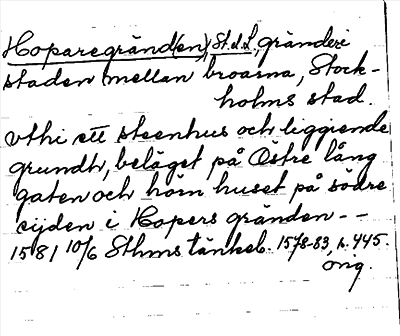 Hoparegränd(en), St.d.L, gränd i
staden mellan broarna, Stock-
holms stad.
vthi ett steenhus och liggiende
grundh, beläget på Östre lång
gaten och hörn huset på södre
sijden i Hopers gränden - -
1581 10/6 Sthms tänkeb. 1578-83, s. 445.
orig.